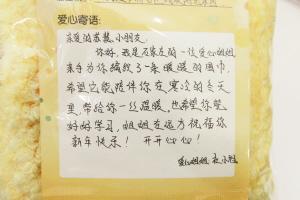 爱心寄语:
亲爱的苏裴小朋友,
你好,我是石家庄的一位爱心姐姐
亲手为你编织了1条暖暖的围巾,
希望它能陪伴你在寒冷的冬天
里,带给你一丝温暖,也希望你能
好好学习,姐姐在远方祝福你
新年快乐!开开心心!
爱心姐姐